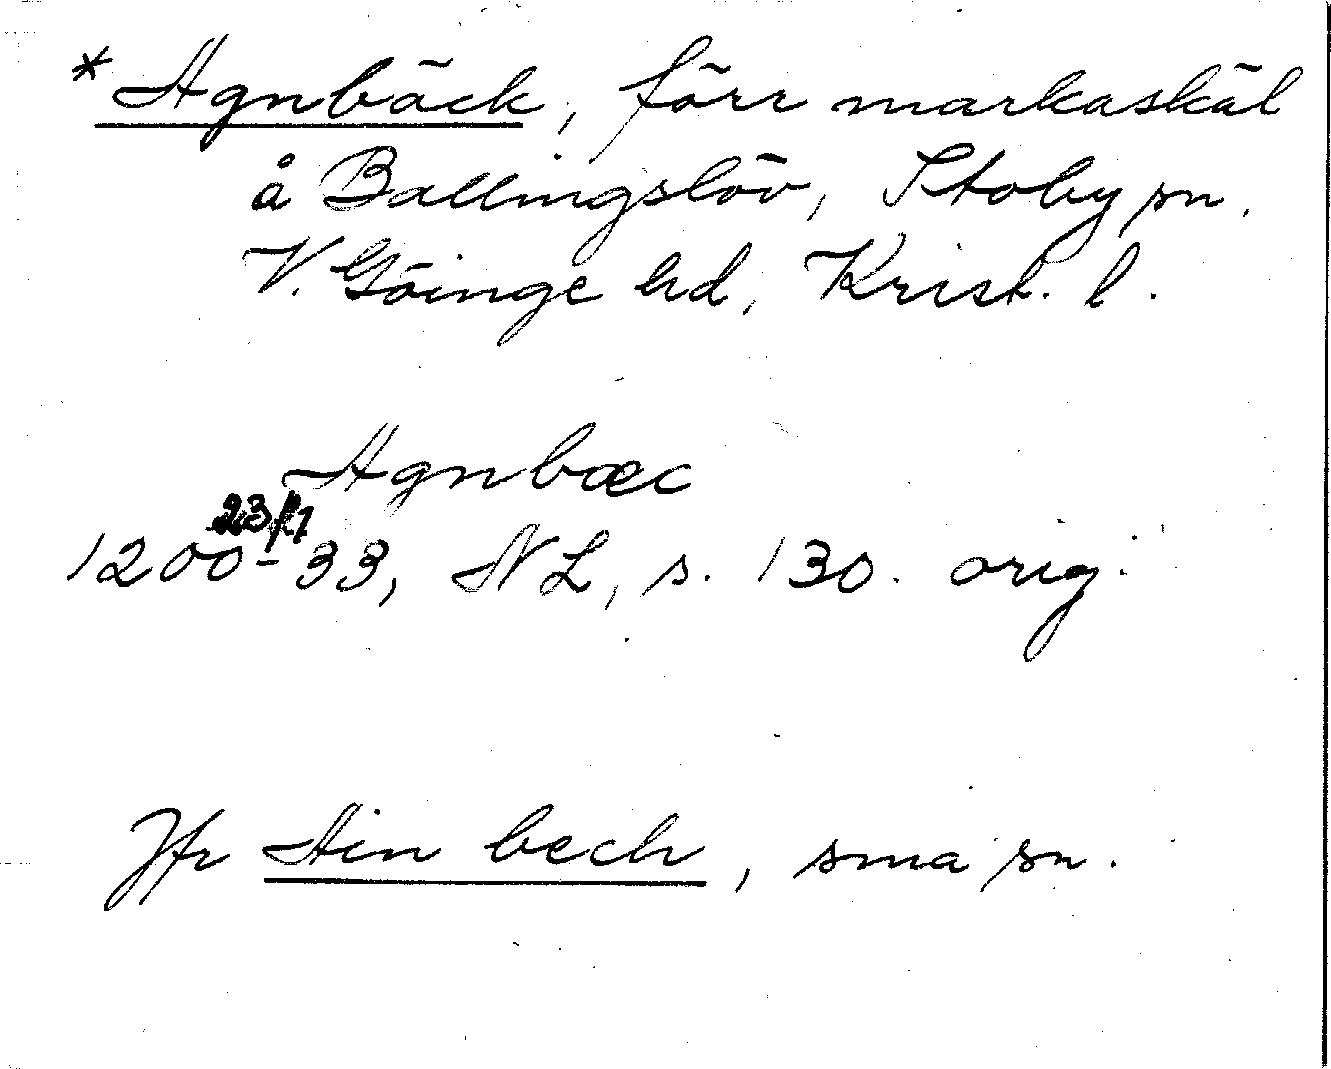 * Agnbäck, förr markaskäl
å Ballingslöv, Stoby sn.
V. Göinge hd, Krist. l.
Agnbæc
23/11
1200-33, NL, s. 130. orig.
Jfr Ain bech, sma sn.